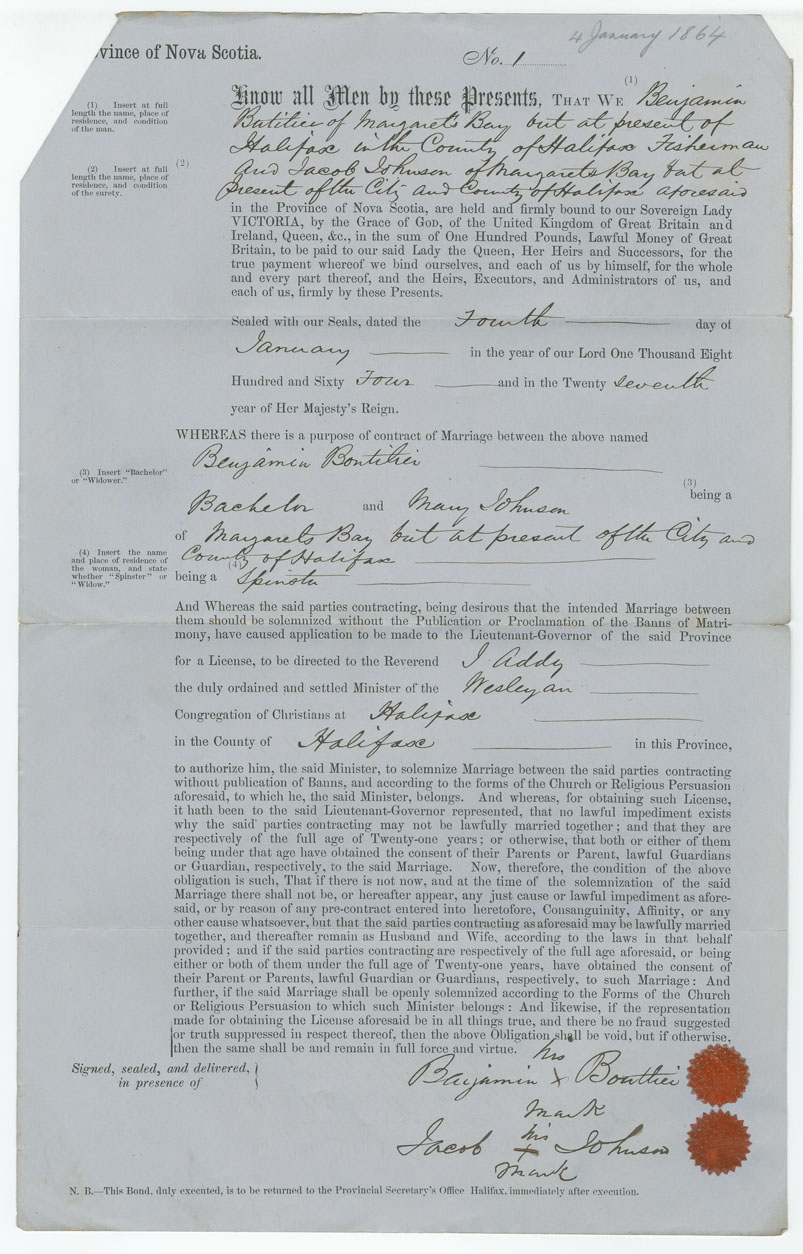 4 January 1864
vince of Nova Scotia.
No. 1
(1)
Know all Men by these Presents, THAT WE Benjamin
(1) Insert at full
length the name, place of
residence, and condition
of the man.
Butilier of Margarets Bay but at present of
Halifax in the County of Halifax Fisherman
(2) Insert at full
length the name, place of
residence, and condition
of the surety.
(2)
and Jacob Johnson of Margarets Bay but at
present of the City and County of Halifax aforesaid
in the Province of Nova Scotia, are held and firmly bound to our Sovereign Lady
VICTORIA, by the Grace of GOD, of the United Kingdom of Great Britain and
Ireland, Queen, &c., in the sum of One Hundred Pounds, Lawful Money of Great
Britain, to be paid to our said Lady the Queen, Her Heirs and Successors, for the
true payment whereof we bind ourselves, and each of us by himself, for the whole
and every part thereof, and the Heirs, Executors, and Administrators of us, and
each of us, firmly by these Presents.
Sealed with our Seals, dated the Fourth day of
January in the year of our Lord One Thousand Eight
Hundred and Sixty Four and in the Twenty seventh
year of Her Majesty's Reign.
WHEREAS there is a purpose of contract of Marriage between the above named
Benjamin Boutilier
(3) Insert "Bachelor"
or "Widower."
(3)
being a
Bachelor and Mary Johnson
of Margarets Bay but at present of the City and
County of Halifax
(4) Insert the name
and place of residence of
the woman, and state
whether "Spinster" or
"Widow."
(4)
being a Spinster
And Whereas the said parties contracting, being desirous that the intended Marriage between
them should be solemnized without the Publication or Proclamation of the Banns of Matri-
mony, have caused application to be made to the Lieutenant-Governor of the said Province
for a License, to be directed to the Reverend I Addy
the duly ordained and settled Minister of the Wesleyan
Congregation of Christians at Halifax
in the County of Halifax in this Province,
to authorize him, the said Minister, to solemnize Marriage between the said parties contracting
without publication of Banns, and according to the forms of the Church or Religious Persuasion
aforesaid, to which he, the said Minister, belongs. And whereas, for obtaining such License,
it hath been to the said Lieutenant-Governor represented, that no lawful impediment exists
why the said parties contracting may not be lawfully married together; and that they are
respectively of the full age of Twenty-one years; or otherwise, that both or either of them
being under that age have obtained the consent of their Parents or Parent, lawful Guardians
or Guardian, respectively, to the said Marriage. Now, therefore, the condition of the above
obligation is such, That if there is not now, and at the time of the solemnization of the said
Marriage there shall not be, or hereafter appear, any just cause or lawful impediment as afore-
said, or by reason of any pre-contract entered into heretofore, Consanguinity, Affinity, or any
other cause whatsoever, but that the said parties contracting as aforesaid may be lawfully married
together, and thereafter remain as Husband and Wife, according to the laws in that behalf
provided; and if the said parties contracting are respectively of the full age aforesaid, or being
either or both of them under the full age of Twenty-one years, have obtained the consent of
their Parent or Parents, lawful Guardian or Guardians, respectively, to such Marriage: And
further, if the said Marriage shall be openly solemnized according to the Forms of the Church
or Religious Persuasion to which such Minister belongs: And likewise, if the representation
made for obtaining the License aforesaid be in all things true, and there be no fraud suggested
or truth suppressed in respect thereof, then the above Obligation shall be void, but if otherwise,
then the same shall be and remain in full force and virtue.
Signed, sealed, and delivered,
in presence of
his
Benjamin x Boutlier
mark
his
Jacob x Johnson
mark
N. B.—This Bond, duly executed, is to be returned to the Provincial Secretary's Office Halifax, immediately after execution.